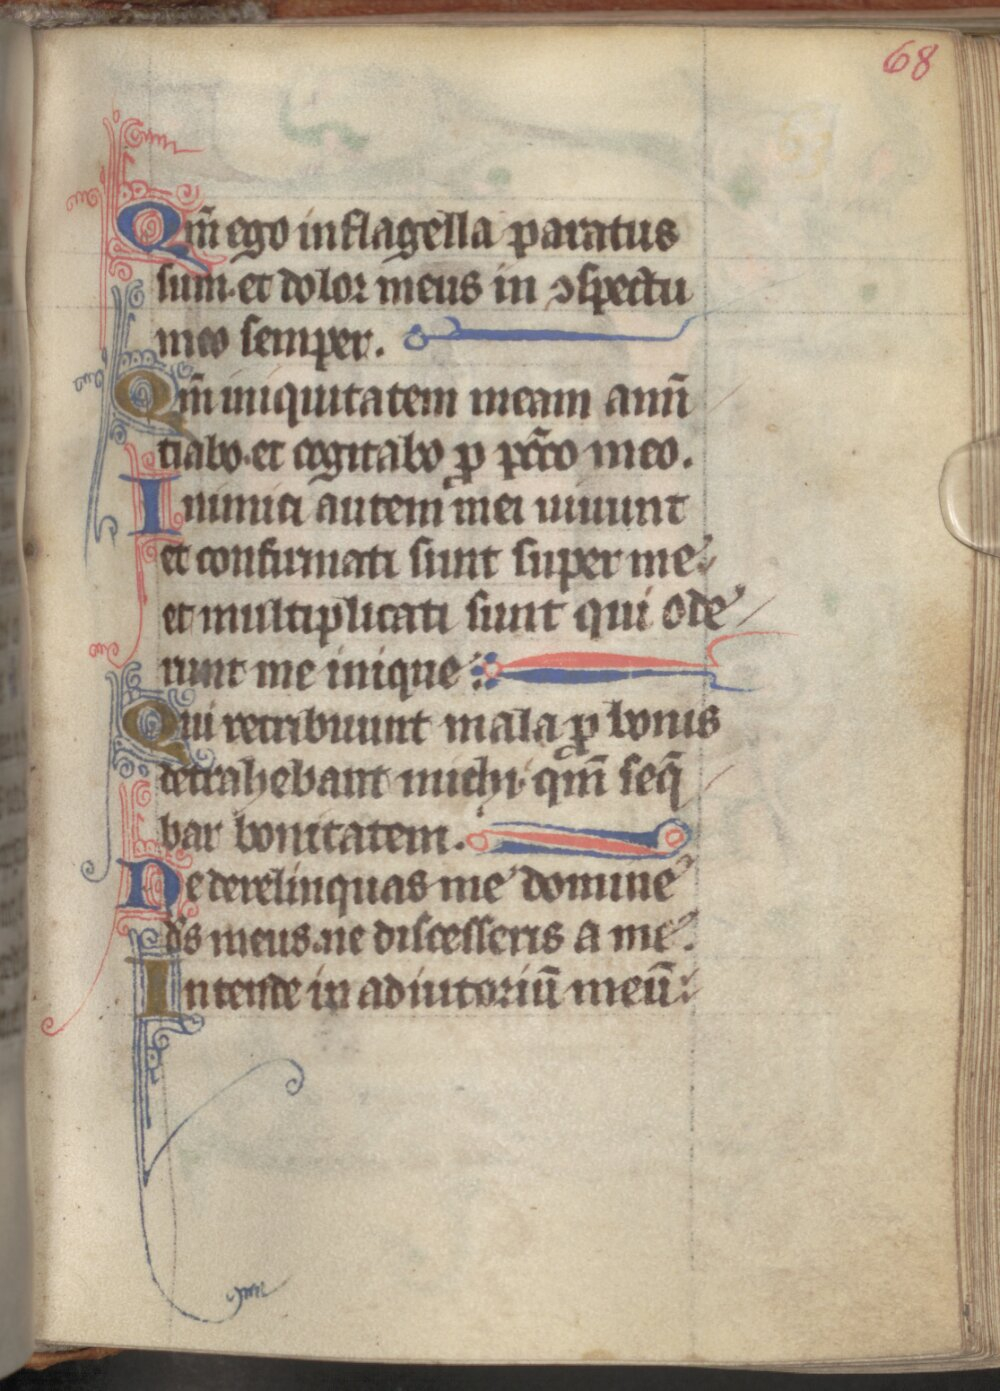 68
Qm̃ ego in flagella paratus
sum· et dolor meus in ↄspectu
meo semper.
Qm̃ iniquitatem meam anũ
tiabo· et cogitabo ꝓ pcc̃o meo.
Inimici autem mei uiuunt
et confirmati sunt super me·
et multiplicati sunt qui ode
runt me inique :
Qui retribuunt mala ꝓ bonis
detrahebant michi· qm̃ seq̃
bar bonitatem.
Ne derelinquas me domine
ds̃ meus· ne discesseris a me.
Intende in adiutoriũ meũ: